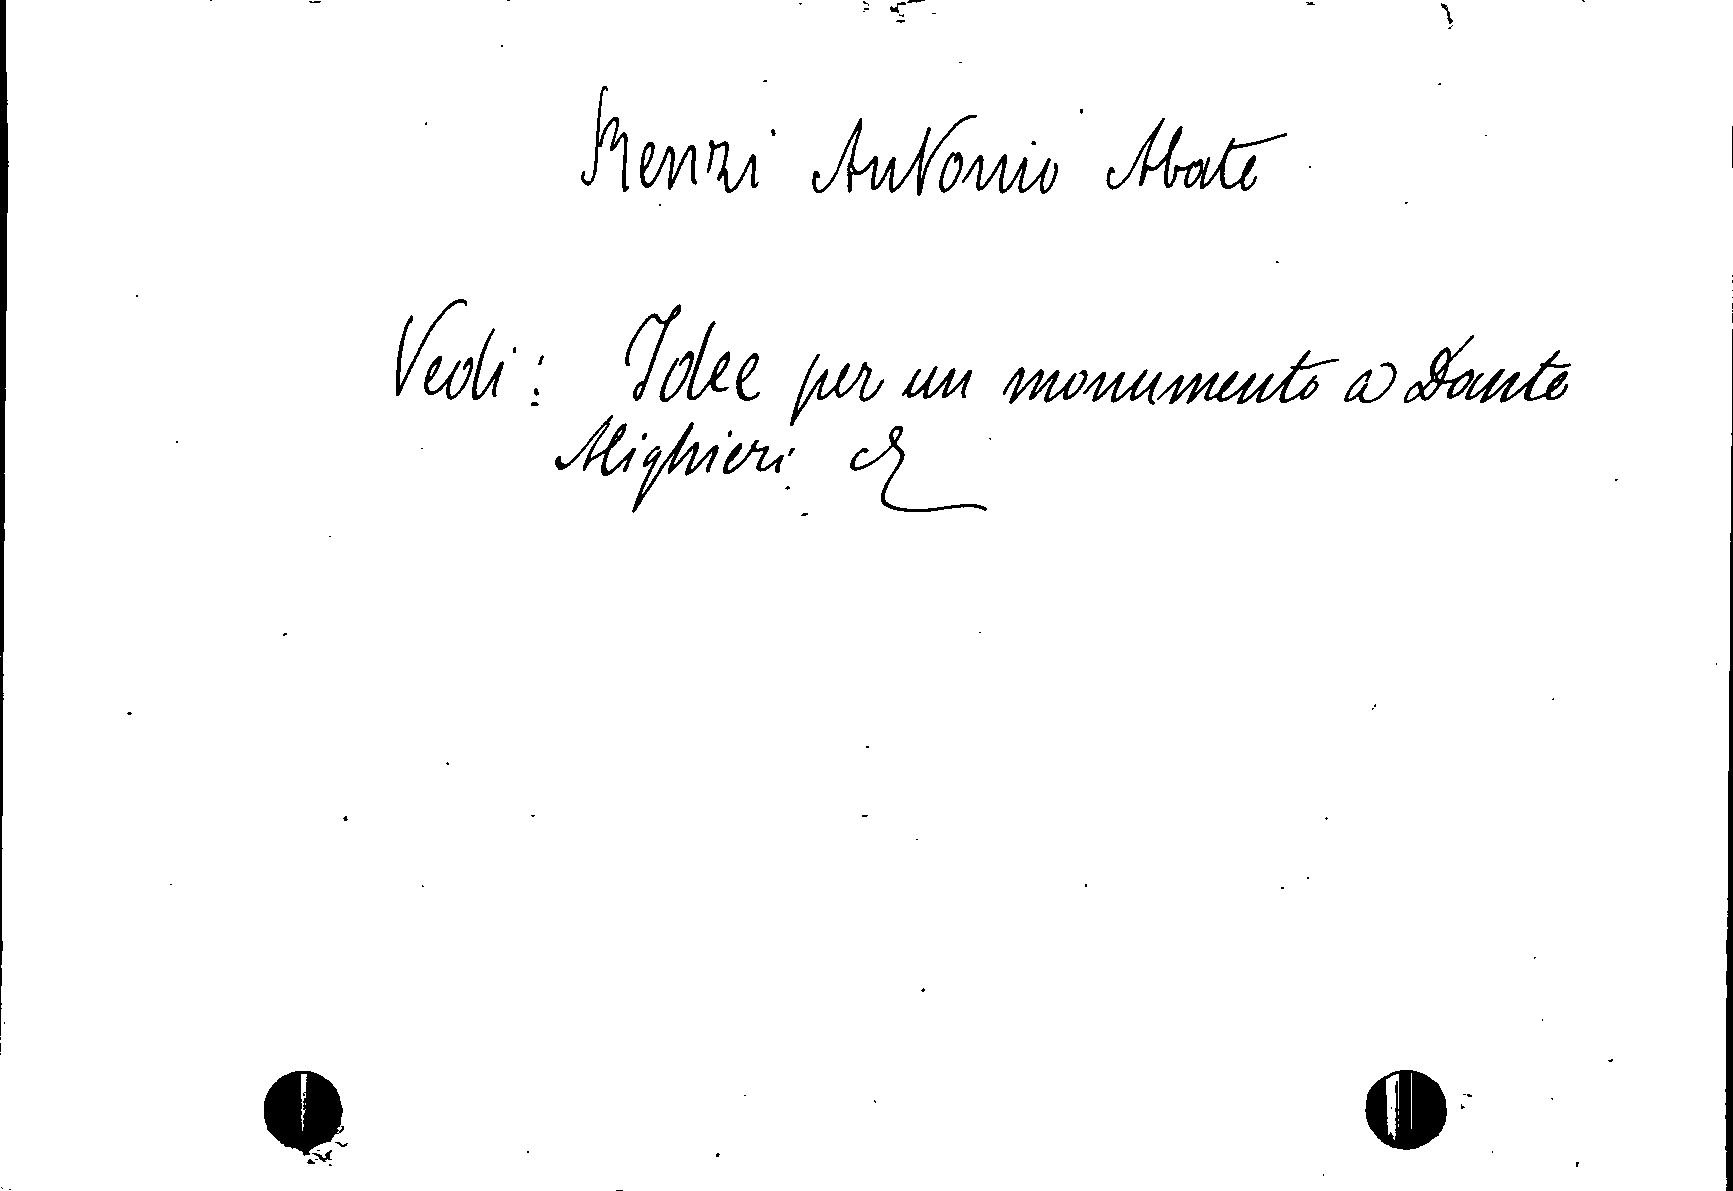 Renzi Antonio Abate
Vedi: Idee per un monumento a Dante
Alighieri